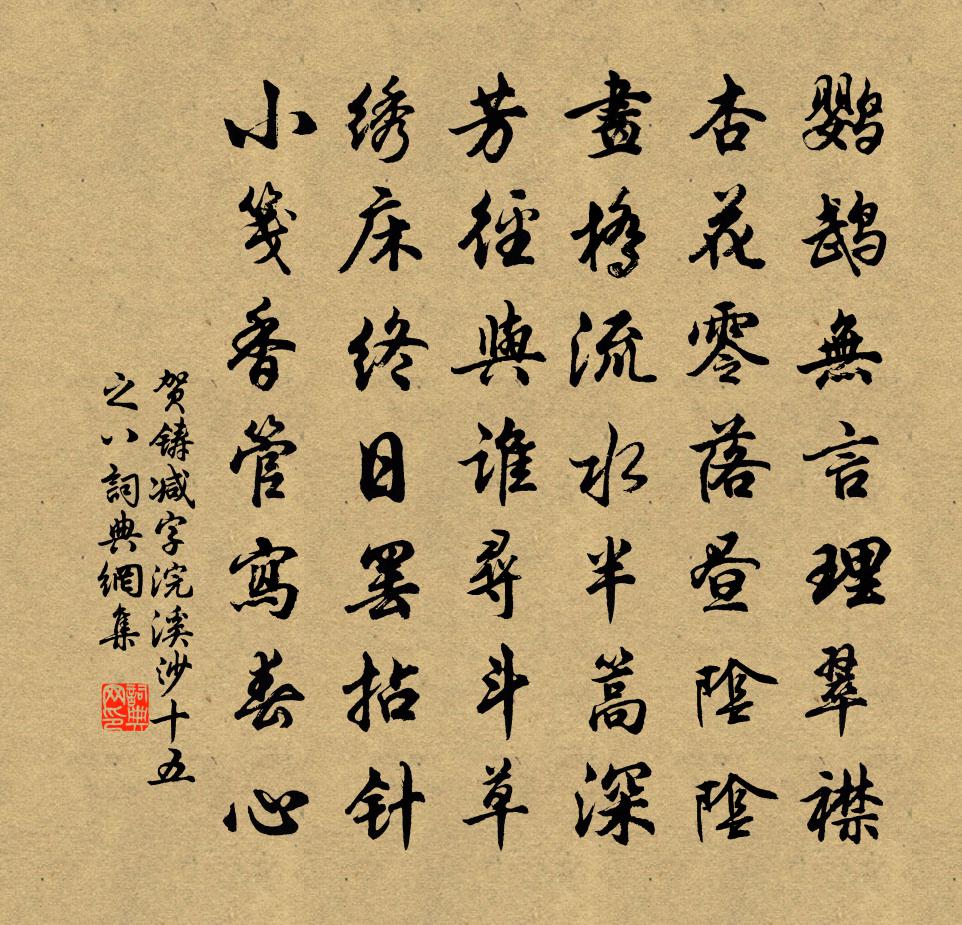 鹦鹉無言理翠襟
杏花零落昼陰陰
畫橋流水半篙深
芳徑與誰尋斗草
绣床终日罢拈针
小笺香管寫春心
贺铸减字浣溪沙十五
之八詞典網集
詞典网印